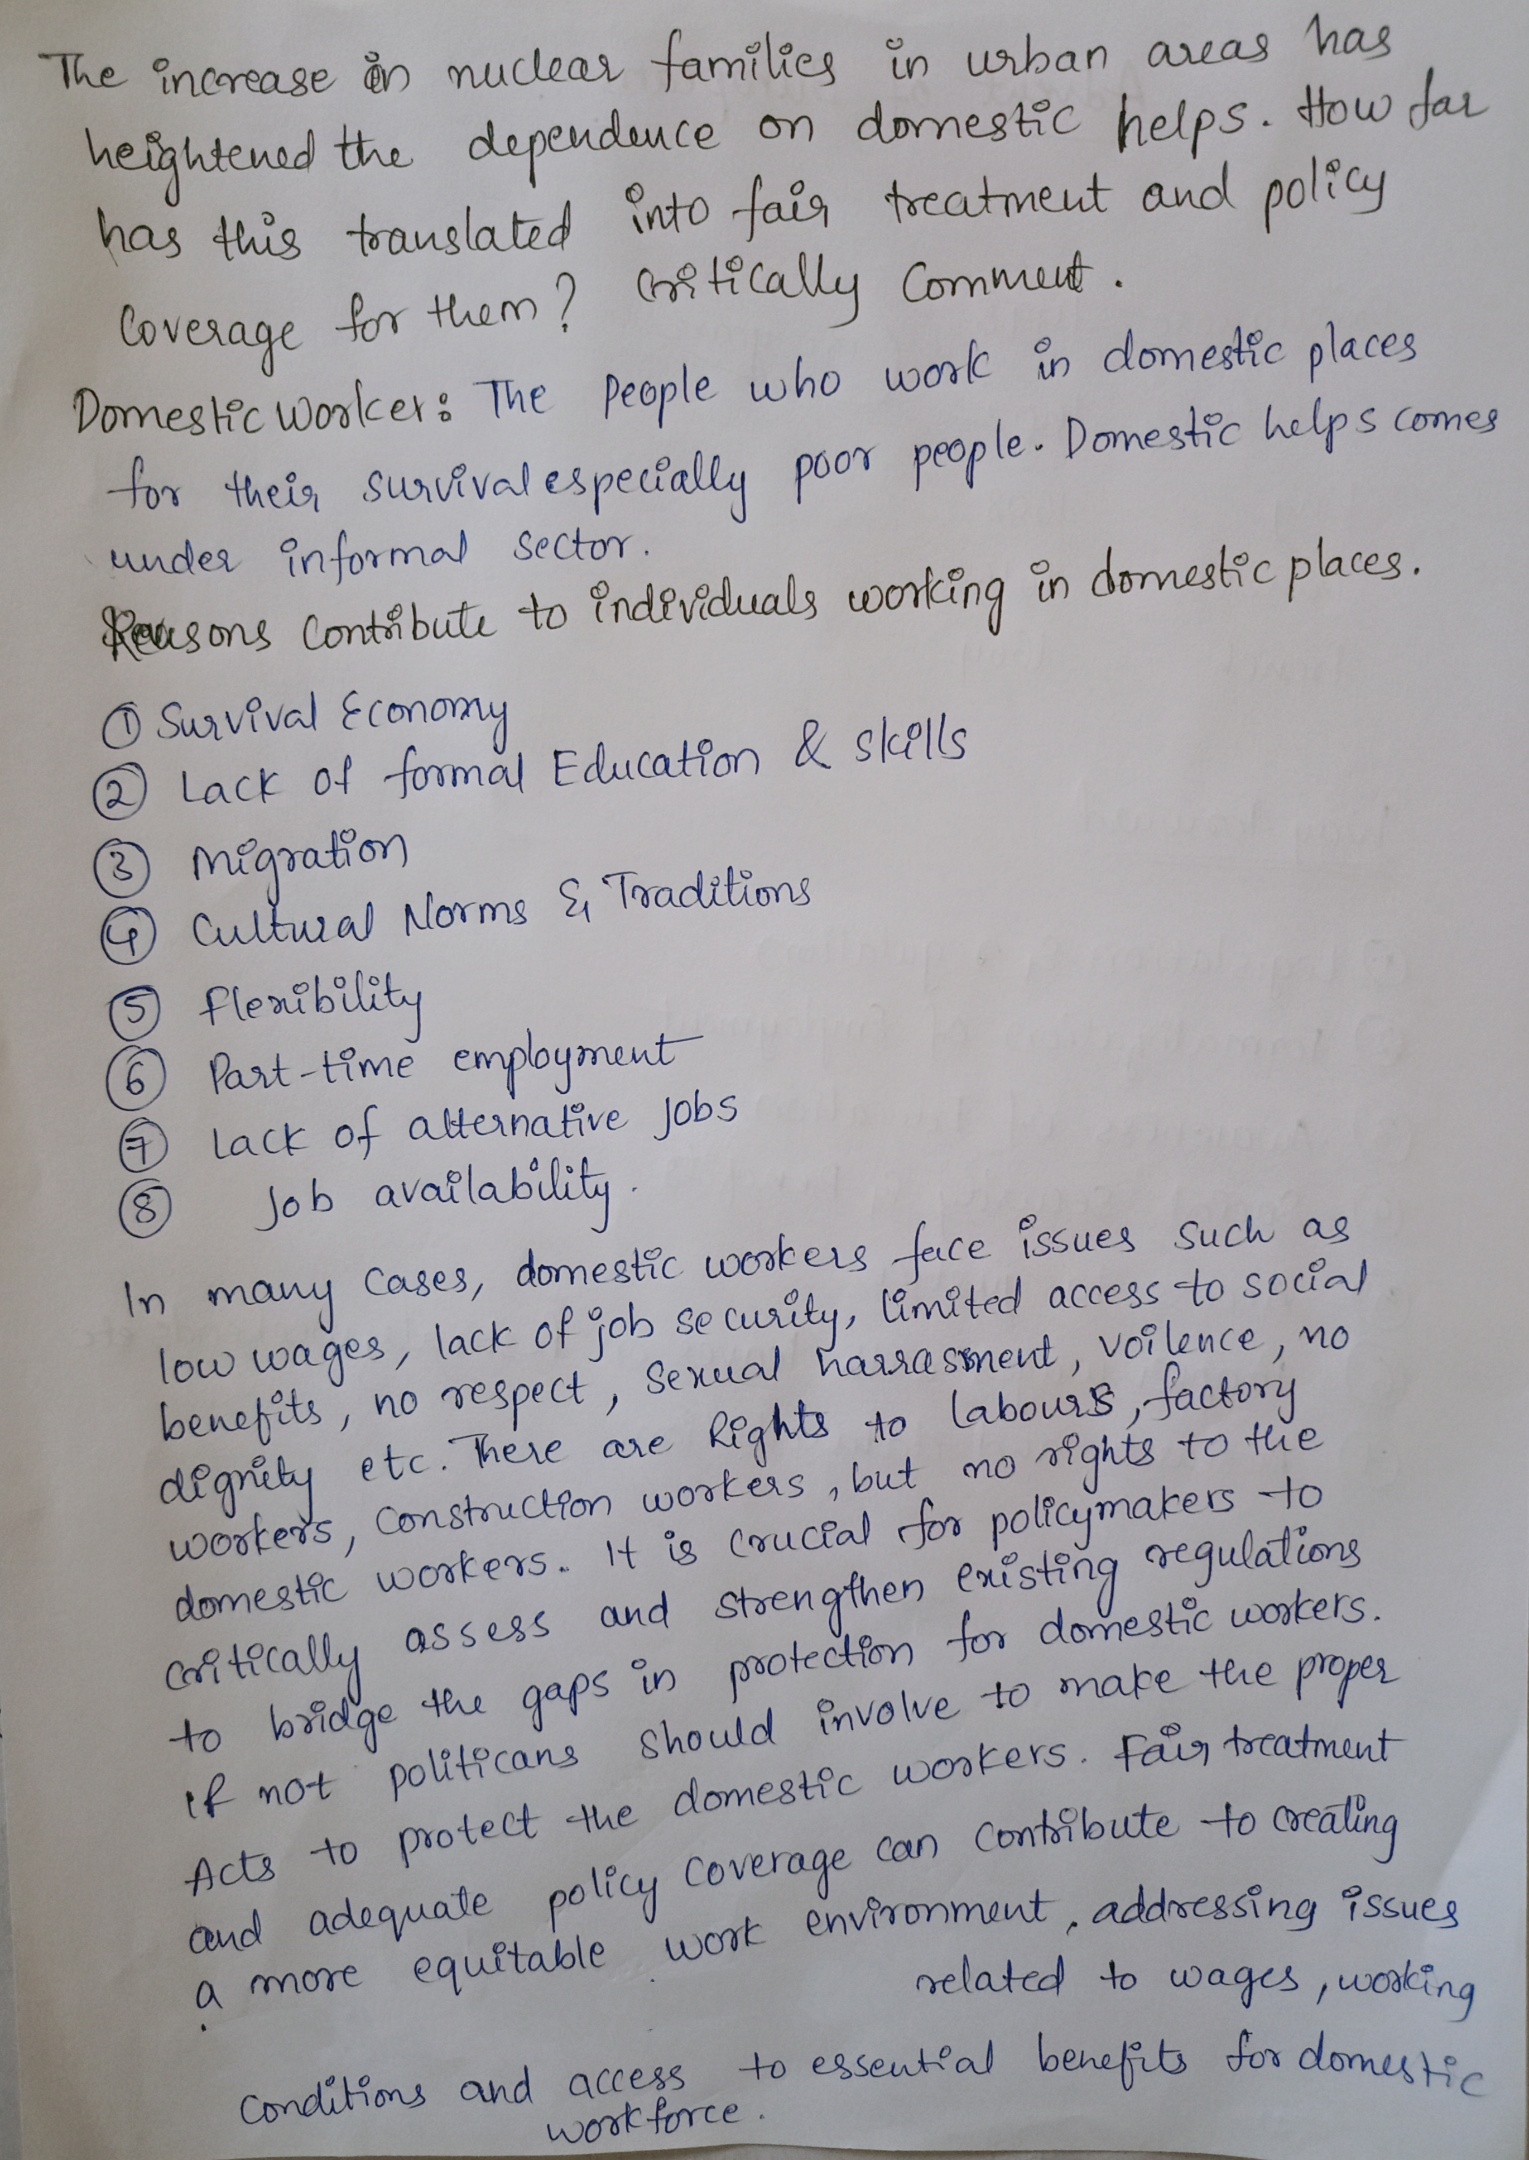 The increase in nuclear families in urban areas has
heightened the dependence on domestic helps. How far
has this translated into fair treatment and policy
Coverage for them? Critically Comment.
Domestic Worker: The People who work in domestic places
for their survival especially poor people. Domestic helps comes
under informal sector.
Reasons Contribute to individuals working in domestic places.
① Survival Economy
② Lack of formal Education & skills
③ Migration
④ Cultural Norms & Traditions
⑤ Flexibility
⑥ Part-time employment
⑦ Lack of alternative Jobs
⑧ Job availability.
In many Cases, domestic workers face issues such as
low wages, lack of job security, limited access to social
benefits, no respect, Sexual harrasment, voilence, no
dignity etc. There are Rights to labours, factory
workers, Construction workers, but no rights to the
domestic workers. It is Crucial for policymakers to
Critically assess and strengthen existing regulations
to bridge the gaps in protection for domestic workers.
If not politicans should involve to make the proper
Acts to protect the domestic workers. Fair treatment
and adequate policy coverage can Contribute to creating
a more equitable work environment, addressing issues
related to wages, working
Conditions and access to essential benefits for domestic
workforce.